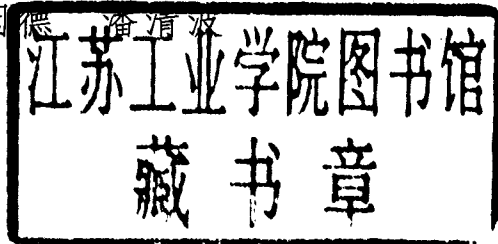 德 潘清
江苏工业学院图书馆
藏书章